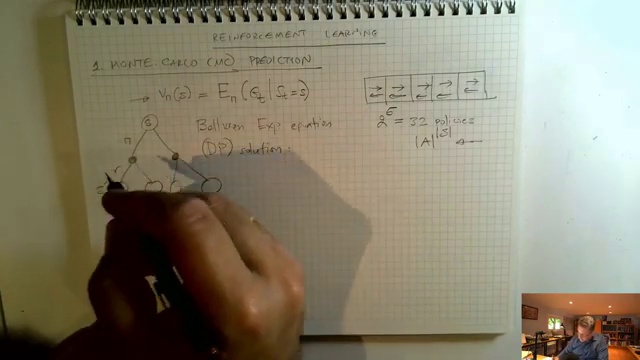 REINFORCEMENT LEARNING
1. MONTE-CARLO (MC) PREDICTION
→ Vπ(s) = Eπ(Gt | St = s)
Bellman Exp equation
(DP) solution:
2^5 = 32 policies
|A|^|S| ←
S
π
r